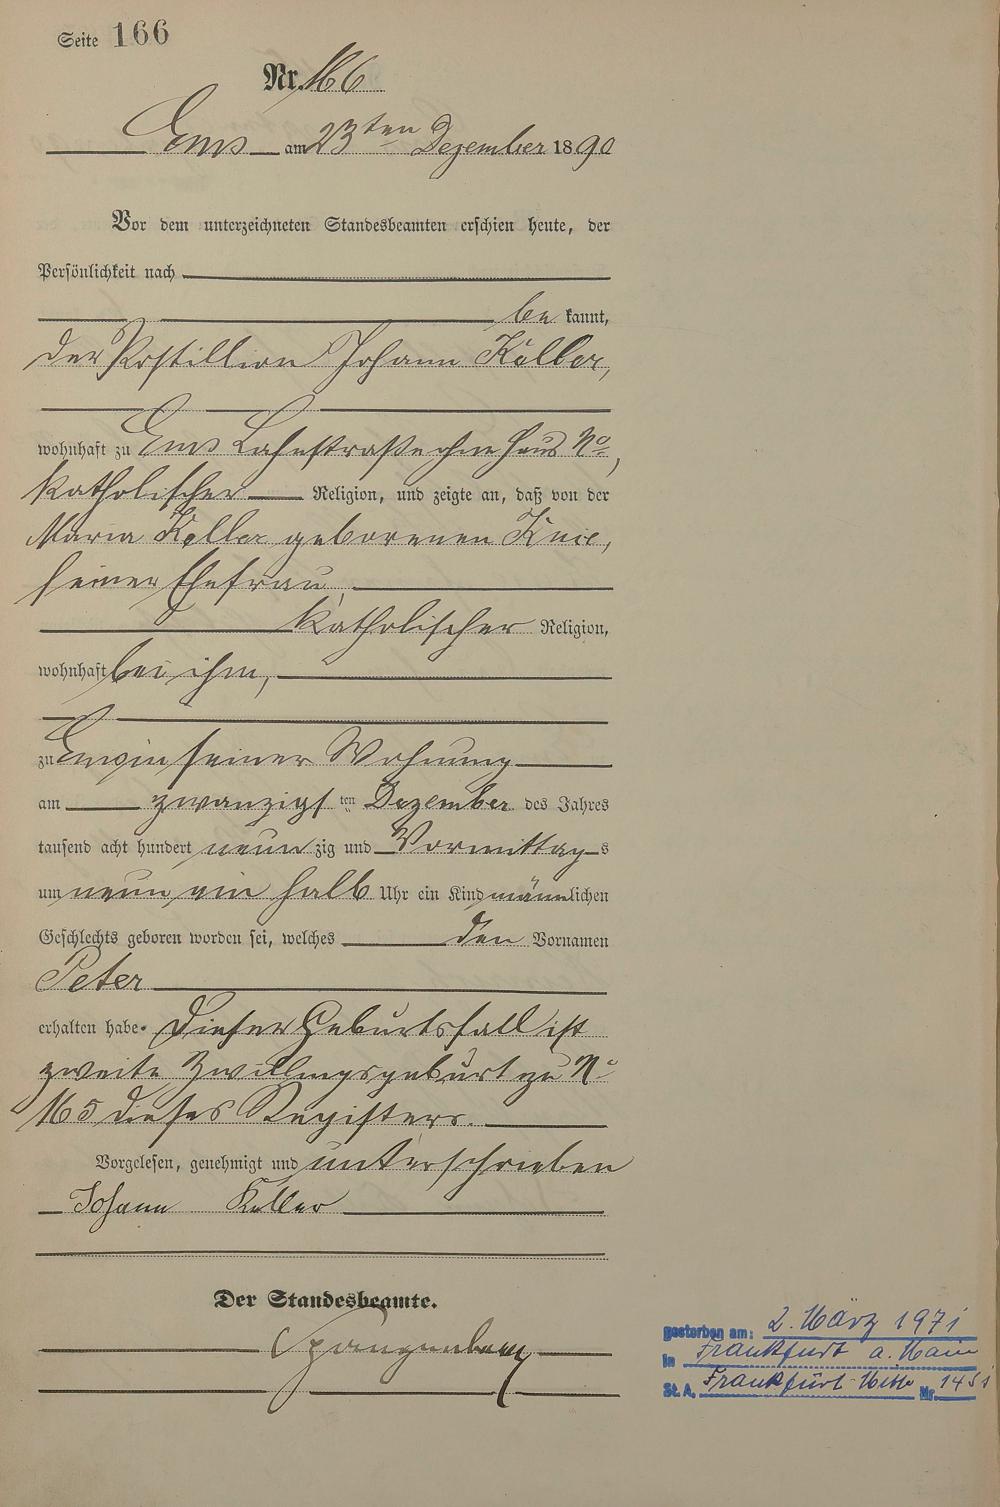 Seite 166
Nr. 166
Ems am 23ten Dezember 1890
Vor dem unterzeichneten Standesbeamten erschien heute, der
Persönlichkeit nach
be kannt,
der Postillion Johann Keller,
wohnhaft zu Ems Lahnstraße ohne Haus No,
katholischer Religion, und zeigte an, daß von der
Maria Keller geborenen Knie,
seiner Ehefrau,
katholischer Religion,
wohnhaft bei ihm,
zu Ems in seiner Wohnung
am zwanzigs ten Dezember des Jahres
tausend acht hundert neun zig und Vormittag s
um neun ein halb Uhr ein Kind männlichen
Geschlechts geboren worden sei, welches den Vornamen
Peter
erhalten habe. Dieser Geburtsfall ist
zweite Zwillingsgeburt zu No
165 dieses Registers.
Vorgelesen, genehmigt und unterschrieben
Johann Keller
Der Standesbeamte.
Spangenberg
gestorben am: 2. März 1971
in Frankfurt a. Main
St. A. Frankfurt Mitte Nr.